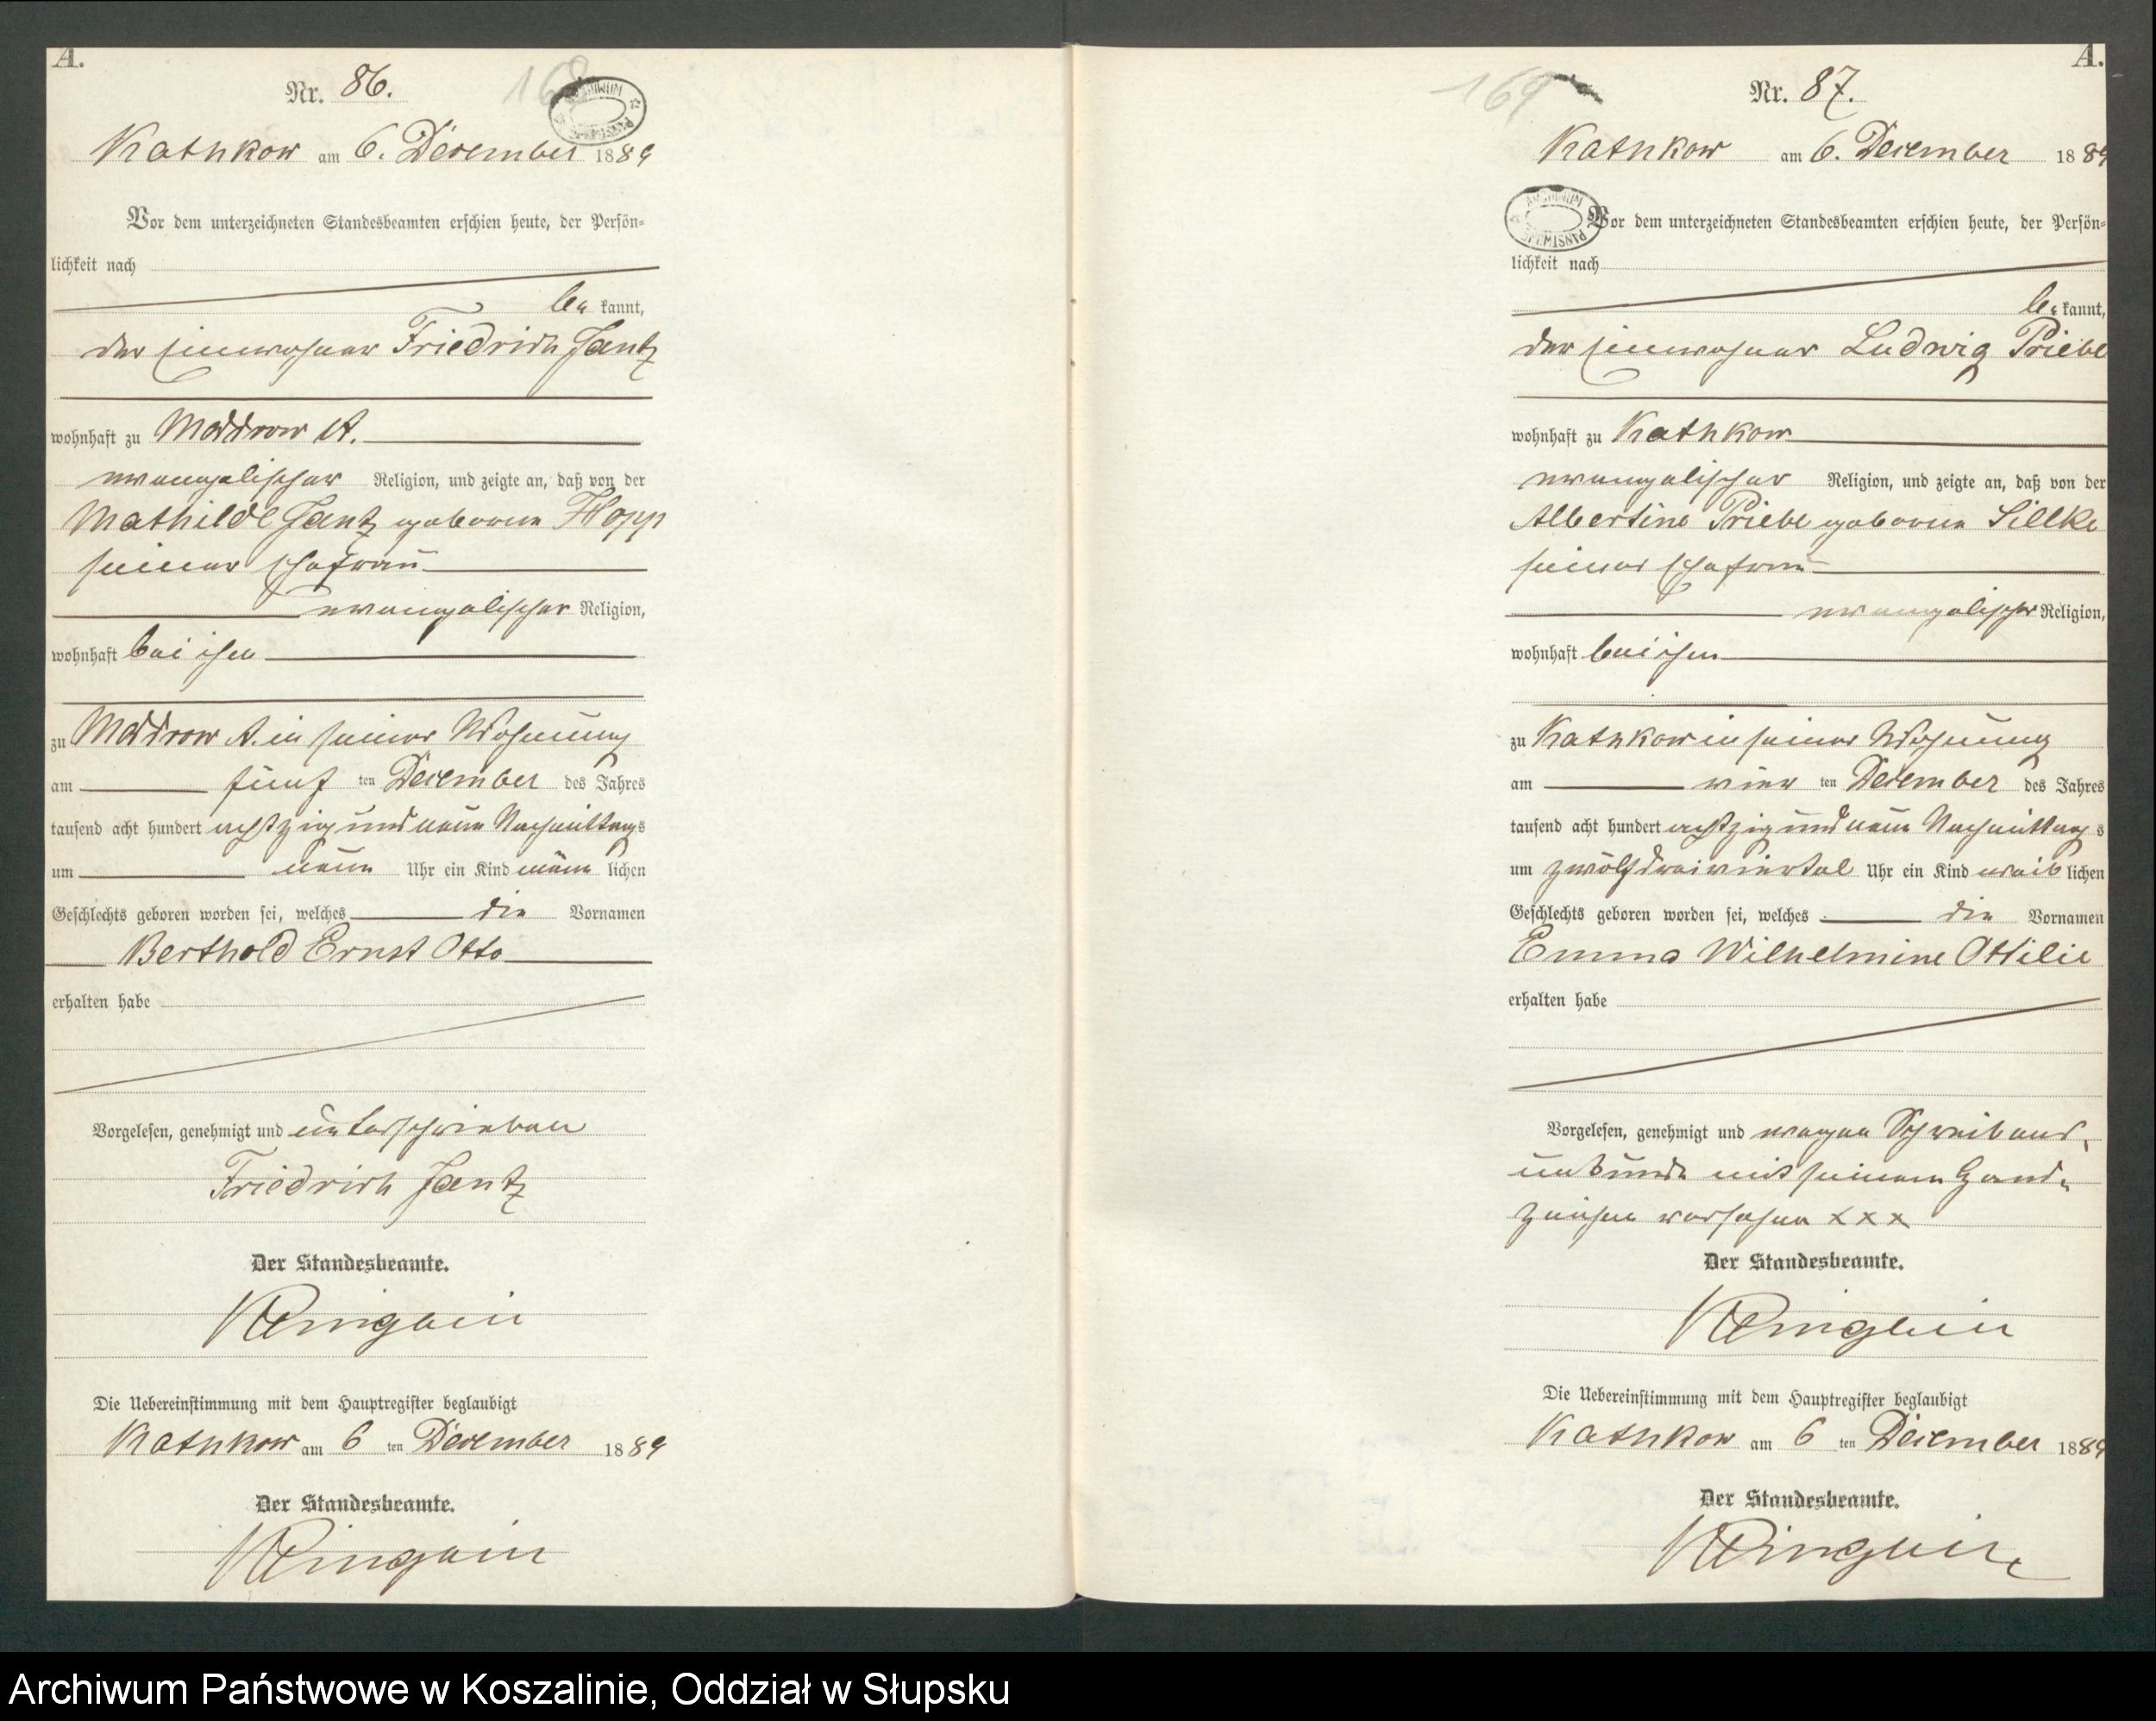 A.
Nr. 86.
168
Kathkow am 6. December 1889
Vor dem unterzeichneten Standesbeamten erschien heute, der Persön=
lichkeit nach
be= kannt,
der Einwohner Friedrich Jantz
wohnhaft zu Moddrow A.
evangelischer Religion, und zeigte an, daß von der
Mathilde Jantz geborene Hopp
seiner Ehefrau
evangelischer Religion,
wohnhaft bei ihm
zu Moddrow A. in seiner Wohnung
am fünf ten December des Jahres
tausend acht hundert achtzig und neun Nachmittags
um neun Uhr ein Kind männ lichen
Geschlechts geboren worden sei, welches die Vornamen
Berthold Ernst Otto
erhalten habe
Vorgelesen, genehmigt und unterschrieben
Friedrich Jantz
Der Standesbeamte.
Die Uebereinstimmung mit dem Hauptregister beglaubigt
Kathkow am 6 ten December 1889
Der Standesbeamte.
A.
169
Nr. 87.
Kathkow am 6. December 1889
ARCHIWUM PAŃSTWOWE
Vor dem unterzeichneten Standesbeamten erschien heute, der Persön=
lichkeit nach
be= kannt,
der Einwohner Ludwig Priebe
wohnhaft zu Kathkow
evangelischer Religion, und zeigte an, daß von der
Albertine Priebe geborene Sillke
seiner Ehefrau
evangelischer Religion,
wohnhaft bei ihm
zu Kathkow in seiner Wohnung
am vier ten December des Jahres
tausend acht hundert achtzig und neun Nachmittag s
um zwölf dreiviertel Uhr ein Kind weib lichen
Geschlechts geboren worden sei, welches die Vornamen
Emma Wilhelmine Ottilie
erhalten habe
Vorgelesen, genehmigt und wegen Schreibens=
unkunde mit seinem Hand=
zeichen versehen x x x
Der Standesbeamte.
Die Uebereinstimmung mit dem Hauptregister beglaubigt
Kathkow am 6 ten December 1889
Der Standesbeamte.
Archiwum Państwowe w Koszalinie, Oddział w Słupsku